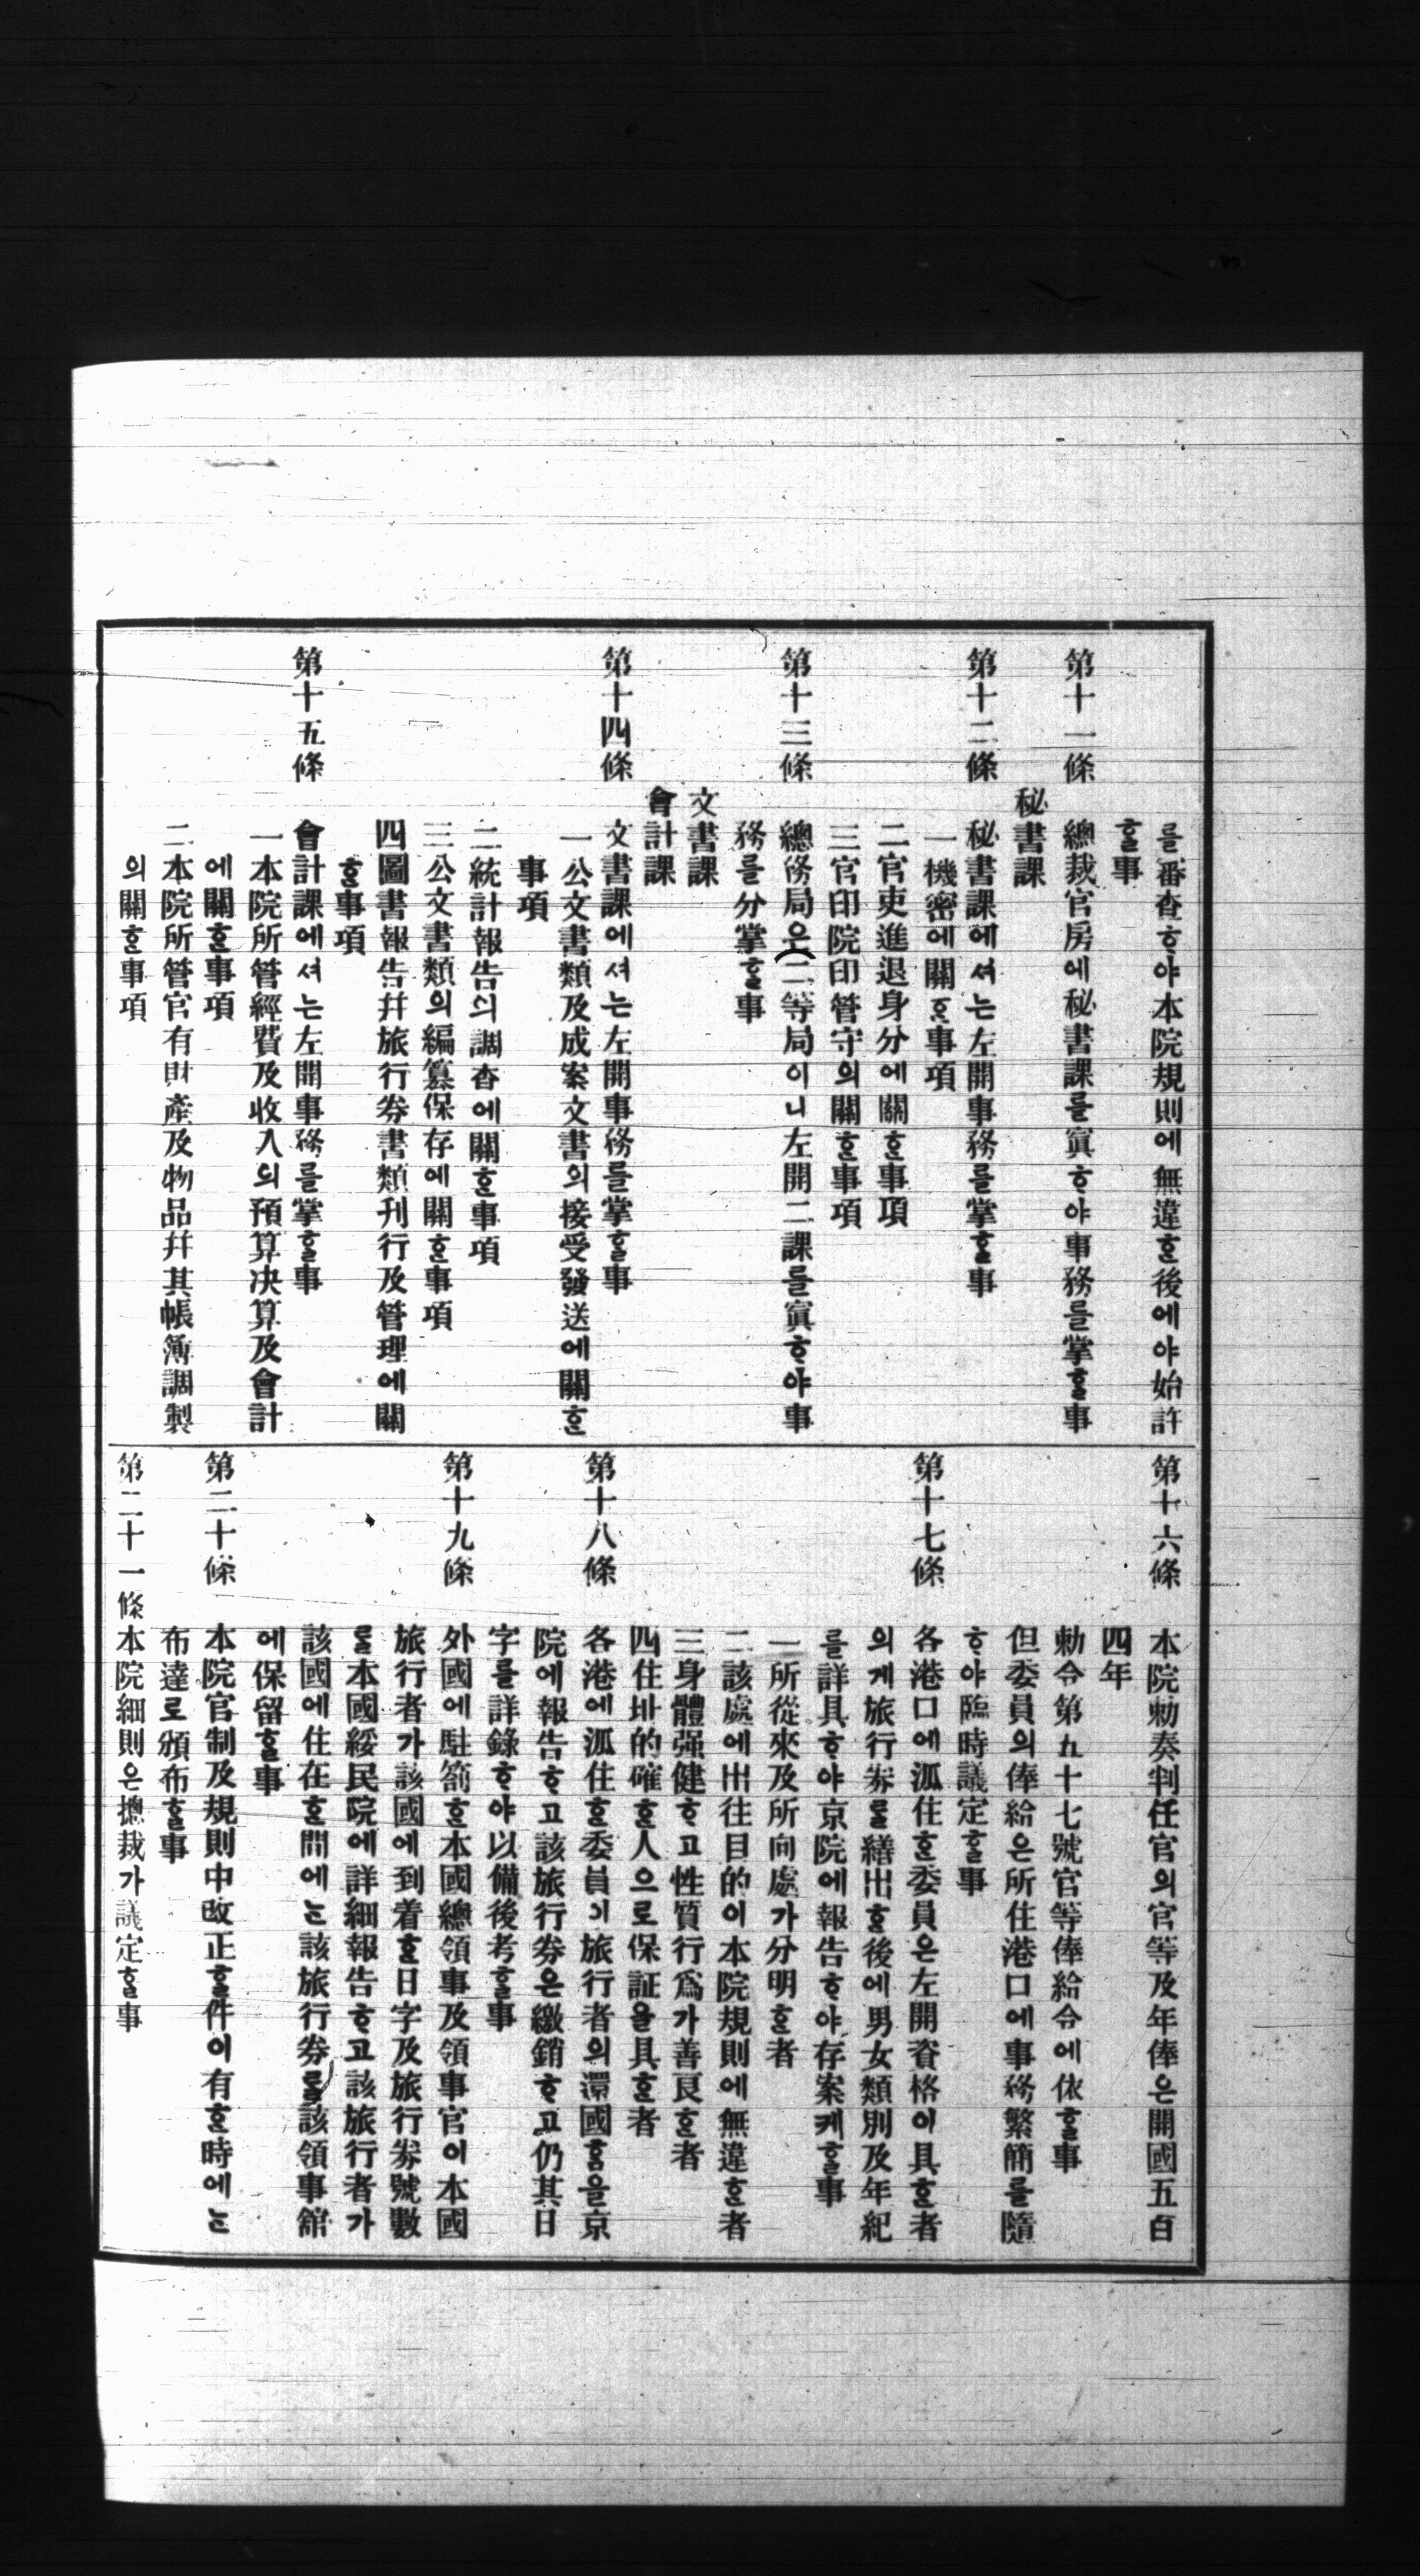 를審查ᄒᆞ야本院規則에無違ᄒᆞᆫ後에야始許
ᄒᆞᆯ事
第十一條 總裁官房에秘書課를寘ᄒᆞ야事務를掌ᄒᆞᆯ事
秘書課
第十二條 秘書課에셔ᄂᆞᆫ左開事務를掌ᄒᆞᆯ事
一機密에關ᄒᆞᆫ事項
二官吏進退身分에關ᄒᆞᆫ事項
三官印院印管守의關ᄒᆞᆫ事項
第十三條 總務局은二等局이니左開二課를寘ᄒᆞ야事
務를分掌ᄒᆞᆯ事
文書課
會計課
第十四條 文書課에셔ᄂᆞᆫ左開事務를掌ᄒᆞᆯ事
一公文書類及成案文書의接受發送에關ᄒᆞᆫ
事項
二統計報告의調查에關ᄒᆞᆫ事項
三公文書類의編纂保存에關ᄒᆞᆫ事項
四圖書報告幷旅行券書類刊行及管理에關
ᄒᆞᆫ事項
第十五條 會計課에셔ᄂᆞᆫ左開事務를掌ᄒᆞᆯ事
一本院所管經費及收入의預算决算及會計
에關ᄒᆞᆫ事項
二本院所管官有財產及物品幷其帳簿調製
의關ᄒᆞᆫ事項
第十六條 本院勅奏判任官의官等及年俸은開國五百
四年
勅令第五十七號官等俸給令에依ᄒᆞᆯ事
但委員의俸給은所住港口에事務繁簡를隨
ᄒᆞ야臨時議定ᄒᆞᆯ事
第十七條 各港口에派住ᄒᆞᆫ委員은左開資格이具ᄒᆞᆫ者
의게旅行券를繕出ᄒᆞᆫ後에男女類別及年紀
를詳具ᄒᆞ야京院에報告ᄒᆞ야存案케ᄒᆞᆯ事
一所從來及所向處가分明ᄒᆞᆫ者
二該處에出往目的이本院規則에無違ᄒᆞᆫ者
三身體强健ᄒᆞ고性質行爲가善良ᄒᆞᆫ者
四住址的確ᄒᆞᆫ人으로保証을具ᄒᆞᆫ者
第十八條 各港에派住ᄒᆞᆫ委員이旅行者의還國ᄒᆞᆷ을京
院에報告ᄒᆞ고該旅行券은繳銷ᄒᆞ고仍其日
字를詳錄ᄒᆞ야以備後考ᄒᆞᆯ事
第十九條 外國에駐箚ᄒᆞᆫ本國總領事及領事官이本國
旅行者가該國에到着ᄒᆞᆫ日字及旅行券號數
를本國綏民院에詳細報告ᄒᆞ고該旅行者가
該國에住在ᄒᆞᆫ間에ᄂᆞᆫ該旅行券를該領事舘
에保留ᄒᆞᆯ事
第二十條 本院官制及規則中改正ᄒᆞᆯ件이有ᄒᆞᆫ時에ᄂᆞᆫ
布達로頒布ᄒᆞᆯ事
第二十一條 本院細則은摠裁가議定ᄒᆞᆯ事